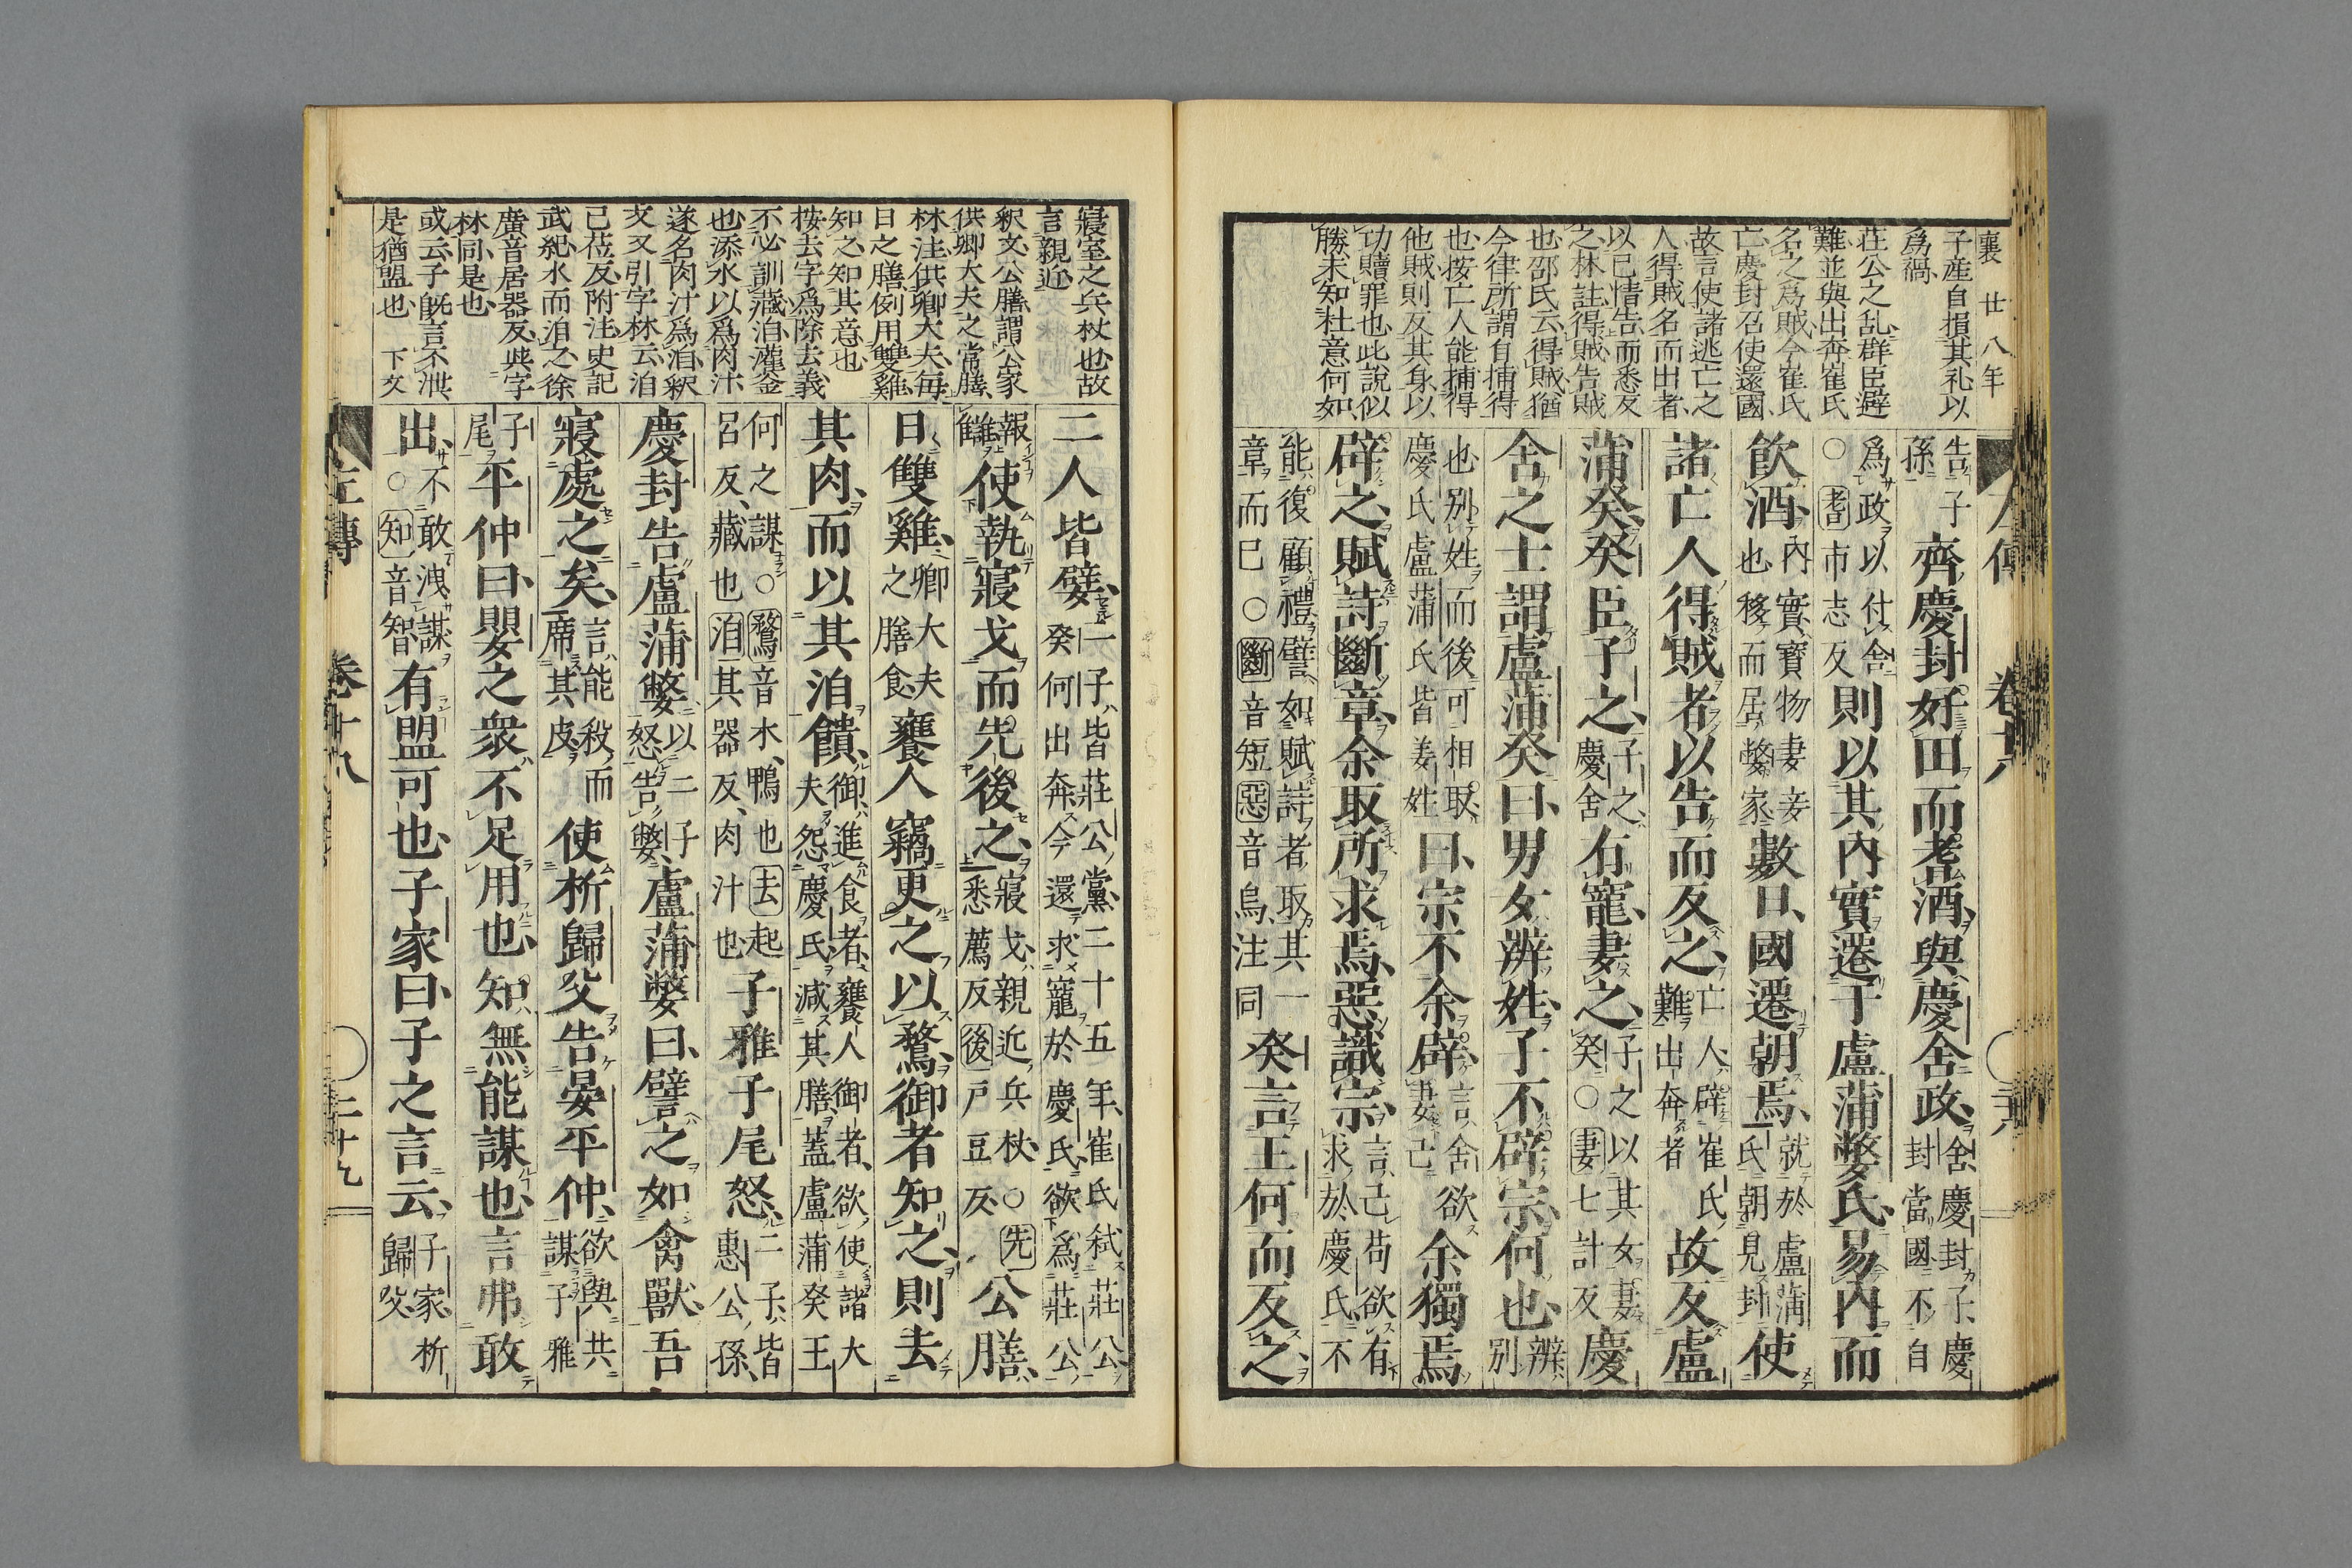 襄 廿八年
子產自損其礼以
爲禍
莊公之乱群臣避
難並與出奔崔氏
名之爲賊今崔氏
亡慶封召使還國
故言使諸逃亡之
人得賊名而出者
以已情告而悉反
之林註得賊告賊
也邵氏云得賊猶
今律所謂自捕得
也按亡人能捕得
他賊則反其身以
功贖罪也此說似
勝未知杜意何如
告子孫齊慶封好田而耆酒與慶舍政舍慶封子慶封當國不自
爲政以付舍○耆市志反則以其內實遷于盧蒲嫳氏易內而
飲酒內實寶物妻妾也移而居嫳家數日國遷朝焉就於盧蒲氏朝見封使
諸亡人得賊者以告而反之亡人辟崔氏難出奔者故反盧
蒲癸癸臣子之子之慶舍有寵妻之子之以其女妻癸○妻七計反慶
舍之士謂盧蒲癸曰男女辨姓子不辟宗何也辨別
也別姓而後可相取慶氏盧蒲氏皆姜姓曰宗不余辟言舍欲妻己余獨焉
辟之賦詩斷章余取所求焉惡識宗言己苟欲有求於慶氏不
能復顧禮譬如賦詩者取其一章而已○斷音短惡音烏注同癸言王何而反之
寢室之兵杖也故
言親近
釈文公膳謂公家
供卿大夫之常膳
林注供卿大夫每
日之膳例用雙雞
知之知其意也
按去字爲除去義
不必訓藏洎灌釜
也添水以爲肉汁
遂名肉汁爲洎釈
文又引字林云洎
己莅反附注史記
武紀水而洎之徐
廣音居器反與字
林同是也
或云子既言不泄
是猶盟也 下文
二人皆嬖二子皆莊公黨二十五年崔氏弒莊公癸何出奔今還求寵於慶氏欲爲莊公
報讎使執寢戈而先後之寢戈親近兵杖○先悉薦反後戶豆反公膳
日雙雞卿大夫之膳食饔人竊更之以鶩御者知之則去
其肉而以其洎饋御進食者饔人御者欲使諸大夫怨慶氏減其膳蓋盧蒲癸王
何之謀○鶩音木鴨也去起呂反藏也洎其器反肉汁也子雅子尾怒二子皆惠公孫
慶封告盧蒲嫳以二子怒告嫳盧蒲嫳曰譬之如禽獸吾
寢處之矣言能殺而席其皮使析歸父告晏平仲欲與共謀子雅
子尾平仲曰嬰之衆不足用也知無能謀也言弗敢
出不敢洩謀○知音智有盟可也子家曰子之言云子家析歸父
左傳 卷十八 二十九